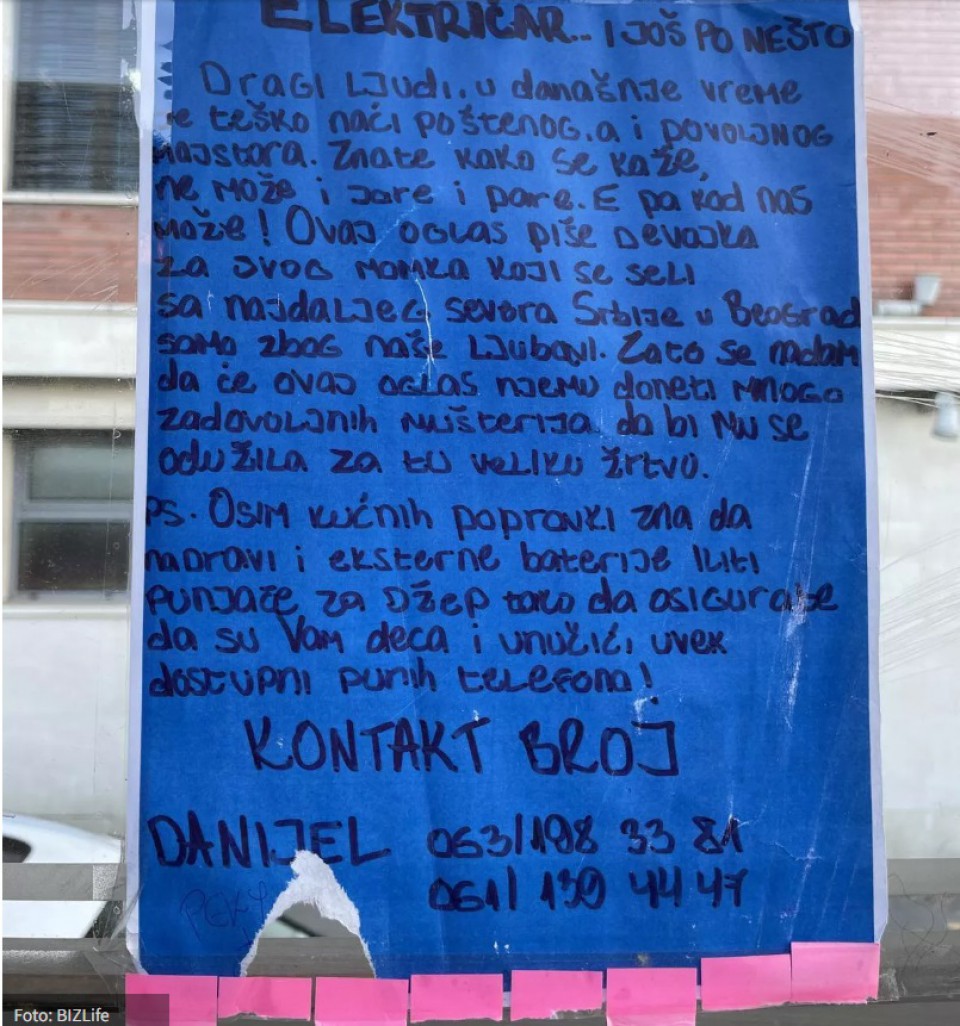 ELEKTRIČAR.. I JOŠ PO NEŠTO
Dragi ljudi, u današnje vreme
je teško naći poštenog, a i povoljnog
majstora. Znate kako se kaže,
ne može i jare i pare. E pa kod nas
može! Ovaj oglas piše devojka
za svog momka koji se seli
sa najdaljeg severa Srbije u Beograd
samo zbog naše ljubavi. Zato se nadam
da će ovaj oglas njemu doneti mnogo
zadovoljnih mušterija da bi mu se
odužila za tu veliku žrtvu.
PS. Osim kućnih popravki zna da
napravi i eksterne baterije iliti
punjače za džep tako da osigurate
da su Vam deca i unučići uvek
dostupni punih telefona!
KONTAKT BROJ
DANIJEL 063/198 33 81
061/ 139 44 47
Foto: BIZLife